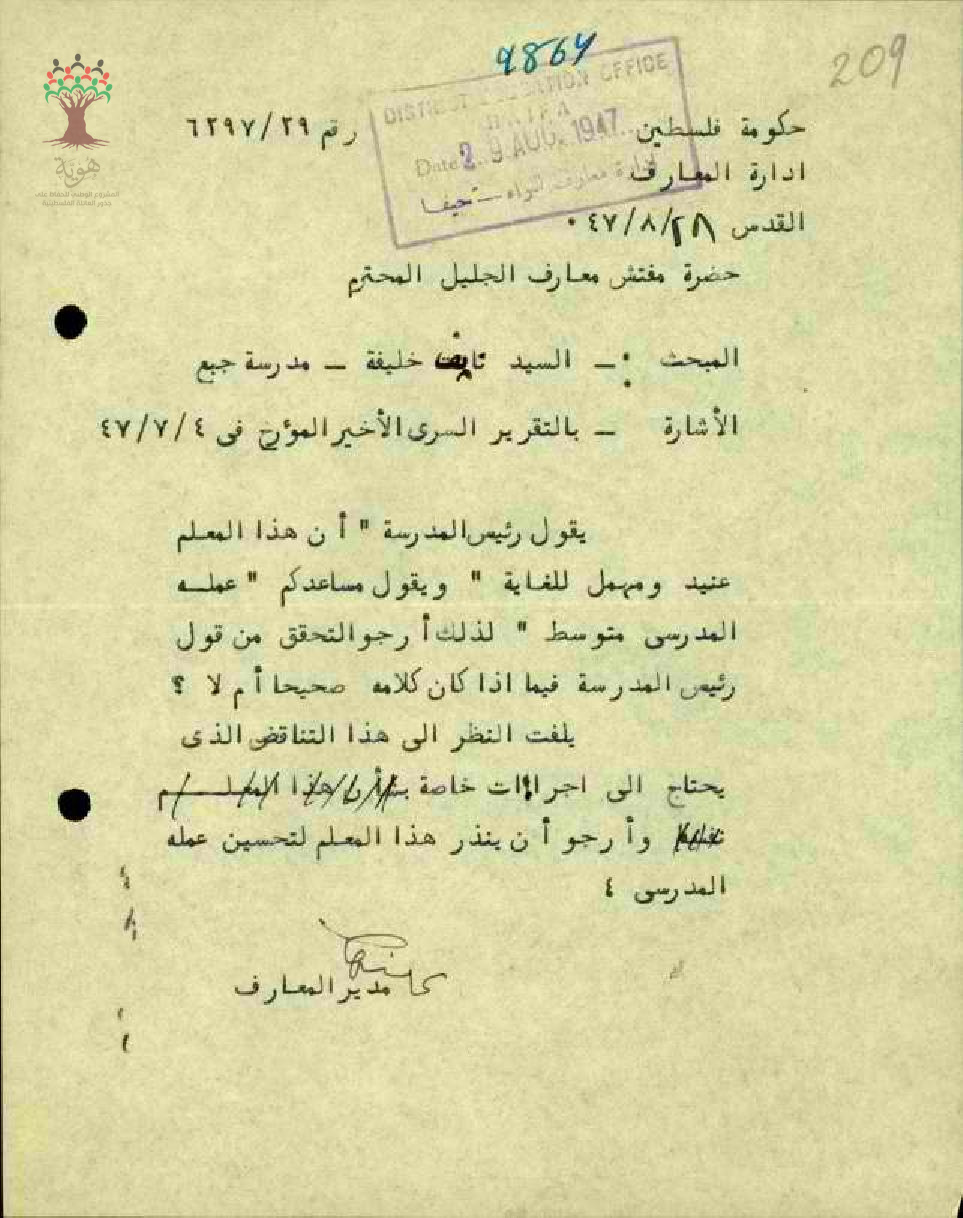 9864
209
DISTRICT EDUCATION OFFICE
HAIFA
Date 29 AUG. 1947
ادارة معارف لواء حيفا
حكومة فلسطين
رقم ٦٢٩٧/٢٩
ادارة المعارف
القدس ٤٧/٨/٢٨ ٠
هوية
المشروع الوطني للحفاظ على
جذور العائلة الفلسطينية
حضرة مفتش معارف الجليل المحترم
المبحث :ـ السيد خليفة ـ مدرسة جبع
الأشارة ـ بالتقرير السرى الأخير المؤرخ فى ٤٧/٧/٤
يقول رئيس المدرسة " أن هذا المعلم
عنيد ومهمل للغاية " ويقول مساعدكم " عمله
المدرسى متوسط " لذلك أرجو التحقق من قول
رئيس المدرسة فيما اذا كان كلامه صحيحا أم لا ؟
يلفت النظر الى هذا التناقض الذى
يحتاج الى اجراءات خاصة بشأن هذا المعلم
وأرجو أن ينذر هذا المعلم لتحسين عمله
المدرسى ٤
مدير المعارف